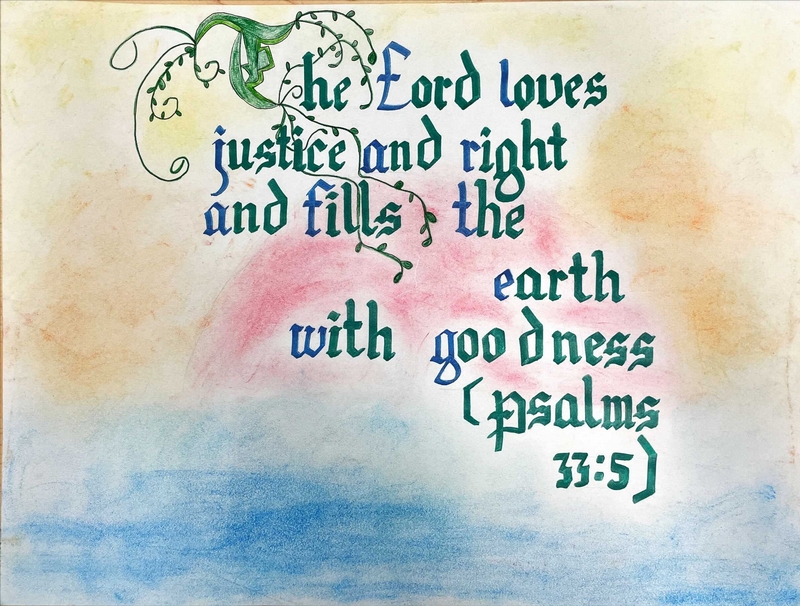 The Lord loves
justice and right
and fills the
earth
with goodness
(psalms
33:5)